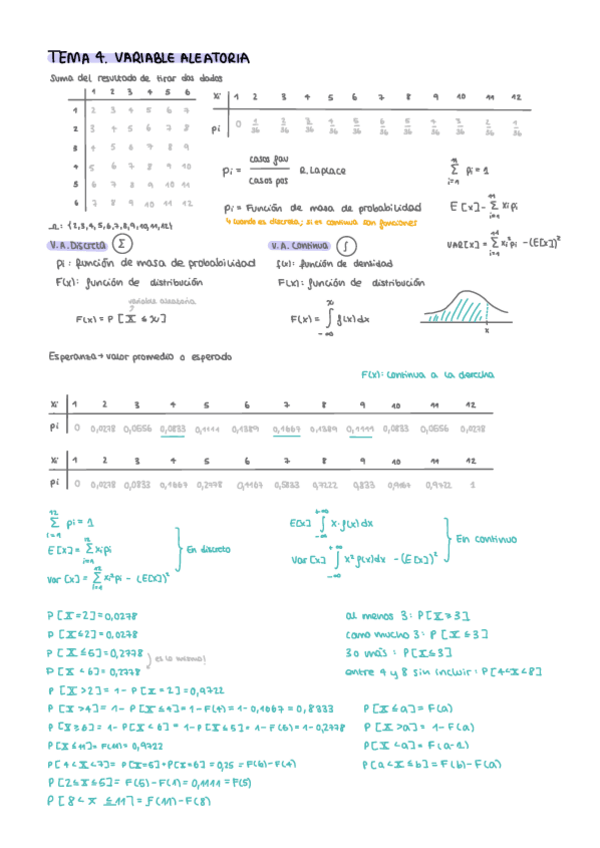 TEMA 4. VARIABLE ALEATORIA
Suma del resultado de tirar dos dados
1 2 3 4 5 6
1 2 3 4 5 6 7
2 3 4 5 6 7 8
3 4 5 6 7 8 9
4 5 6 7 8 9 10
5 6 7 8 9 10 11
6 7 8 9 10 11 12
Ω: {2,3,4,5,6,7,8,9,10,11,12}
xi 1 2 3 4 5 6 7 8 9 10 11 12
pi 0 1/36 2/36 3/36 4/36 5/36 6/36 5/36 4/36 3/36 2/36 1/36
pi = casos fav / casos pos R. Laplace
pi = Función de masa de probabilidad
↳ cuando es discreta; si es continua son funciones
Σ pi = 1
E[x] = Σ xi pi
VAR[x] = Σ xi² pi - (E[x])²
V.A. Discreta Σ
pi: función de masa de probabilidad
F(x): función de distribución
variable aleatoria
F(x) = P [X ≤ x]
V.A. Continua ∫
f(x): función de densidad
F(x): función de distribución
F(x) = ∫ f(x) dx
x
-∞
x
Esperanza → valor promedio o esperado
F(x): continua a la derecha
xi 1 2 3 4 5 6 7 8 9 10 11 12
pi 0 0,0278 0,0556 0,0833 0,1111 0,1389 0,1667 0,1389 0,1111 0,0833 0,0556 0,0278
xi 1 2 3 4 5 6 7 8 9 10 11 12
pi 0 0,0278 0,0833 0,1667 0,2778 0,4167 0,5833 0,7222 0,833 0,9167 0,9722 1
12
Σ pi = 1
i=1
E[x] = Σ xi pi
Var [x] = Σ xi² pi - (E[x])²
En discreto
E[x] ∫ x·f(x) dx
Var [x] ∫ x² f(x) dx - (E[x])²
+∞
-∞
En continuo
P [X = 2] = 0,0278
P [X ≤ 2] = 0,0278
P [X ≤ 5] = 0,2778
P [X < 6] = 0,2778
es lo mismo!
P [X > 2] = 1 - P [X = 2] = 0,9722
P [X > 4] = 1 - P [X ≤ 4] = 1 - F(4) = 1 - 0,1667 = 0,8333
P [X ≥ 6] = 1 - P [X < 6] = 1 - P [X ≤ 5] = 1 - F(5) = 1 - 0,2778
P [X ≤ 11] = F(11) = 0,9722
P [4 < X < 7] = P [X = 5] + P [X = 6] = 0,25 = F(6) - F(4)
P [2 ≤ X ≤ 5] = F(5) - F(1) = 0,1111 = F(5)
P [8 < X ≤ 11] = F(11) - F(8)
al menos 3: P [X ≥ 3]
como mucho 3: P [X ≤ 3]
3 o más: P [X ≤ 3]
entre 4 y 8 sin incluir: P [4 < X < 8]
P [X ≤ a] = F(a)
P [X > a] = 1 - F(a)
P [X < a] = F(a-1)
P [a < X ≤ b] = F(b) - F(a)